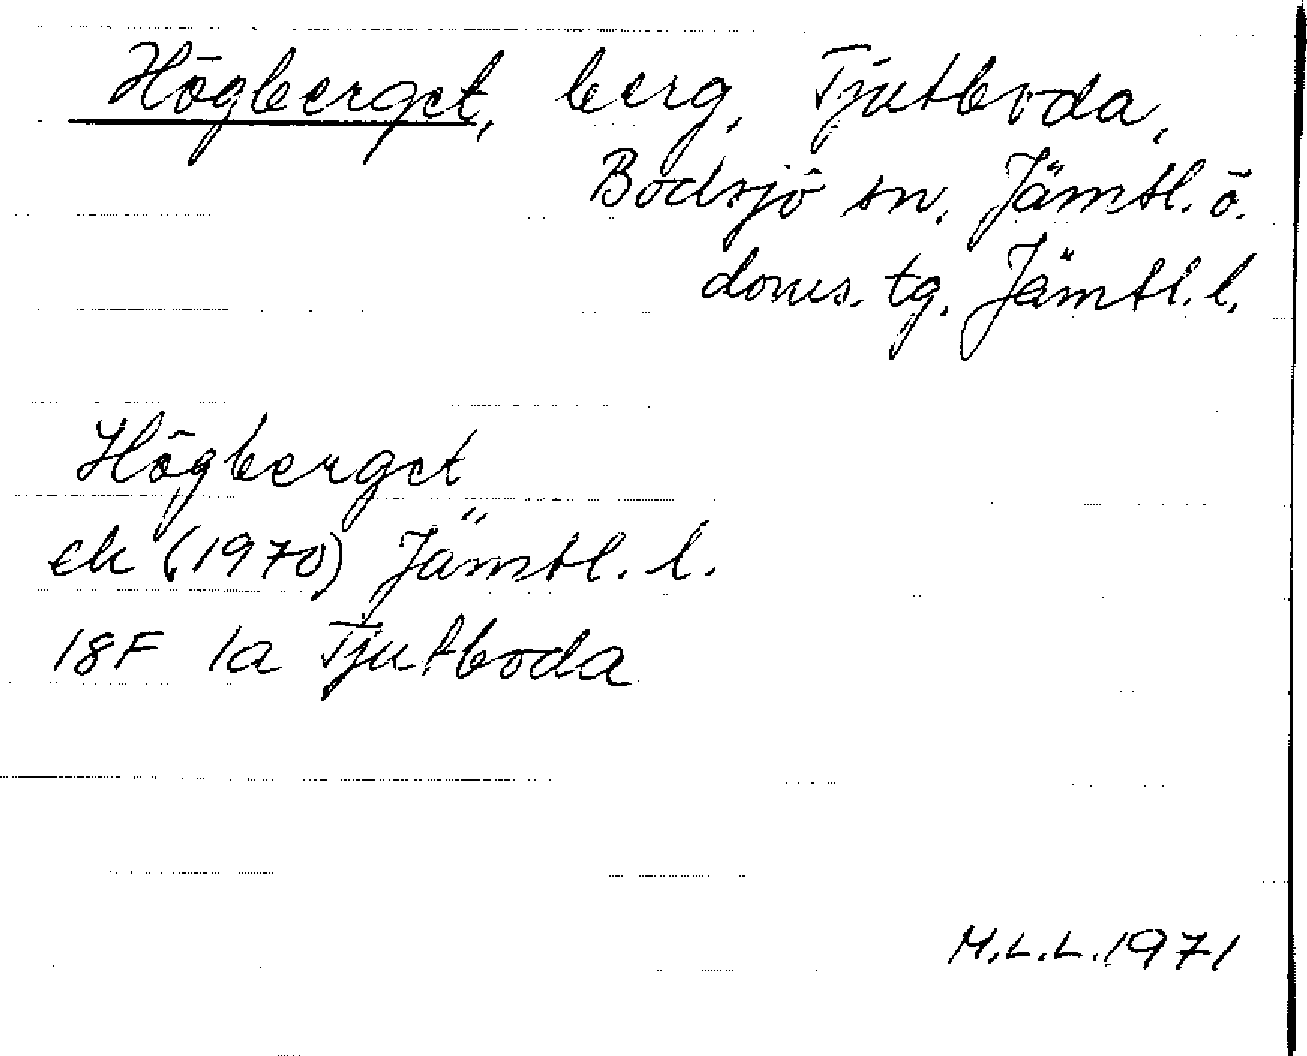 Högberget, berg, Tjutboda,
Bodsjö sn, Jämtl. ö.
doms. tg. Jämtl. l.
Högberget
ek (1970) Jämtl. l.
18F 1a Tjutboda
M.L.L. 1971